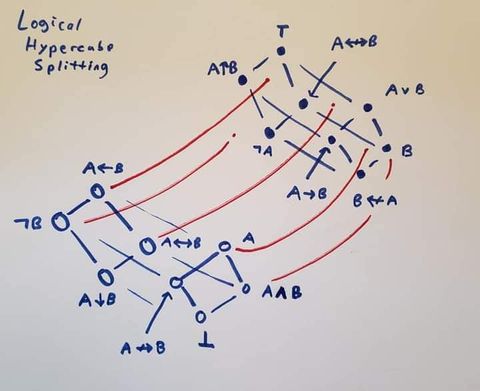 Logical
Hypercube
Splitting
T
A↮B
A↑B
A∨B
¬A
B
A→B
B↚A
A←B
¬B
A↔B
A
A↓B
A∧B
A↛B
⊥